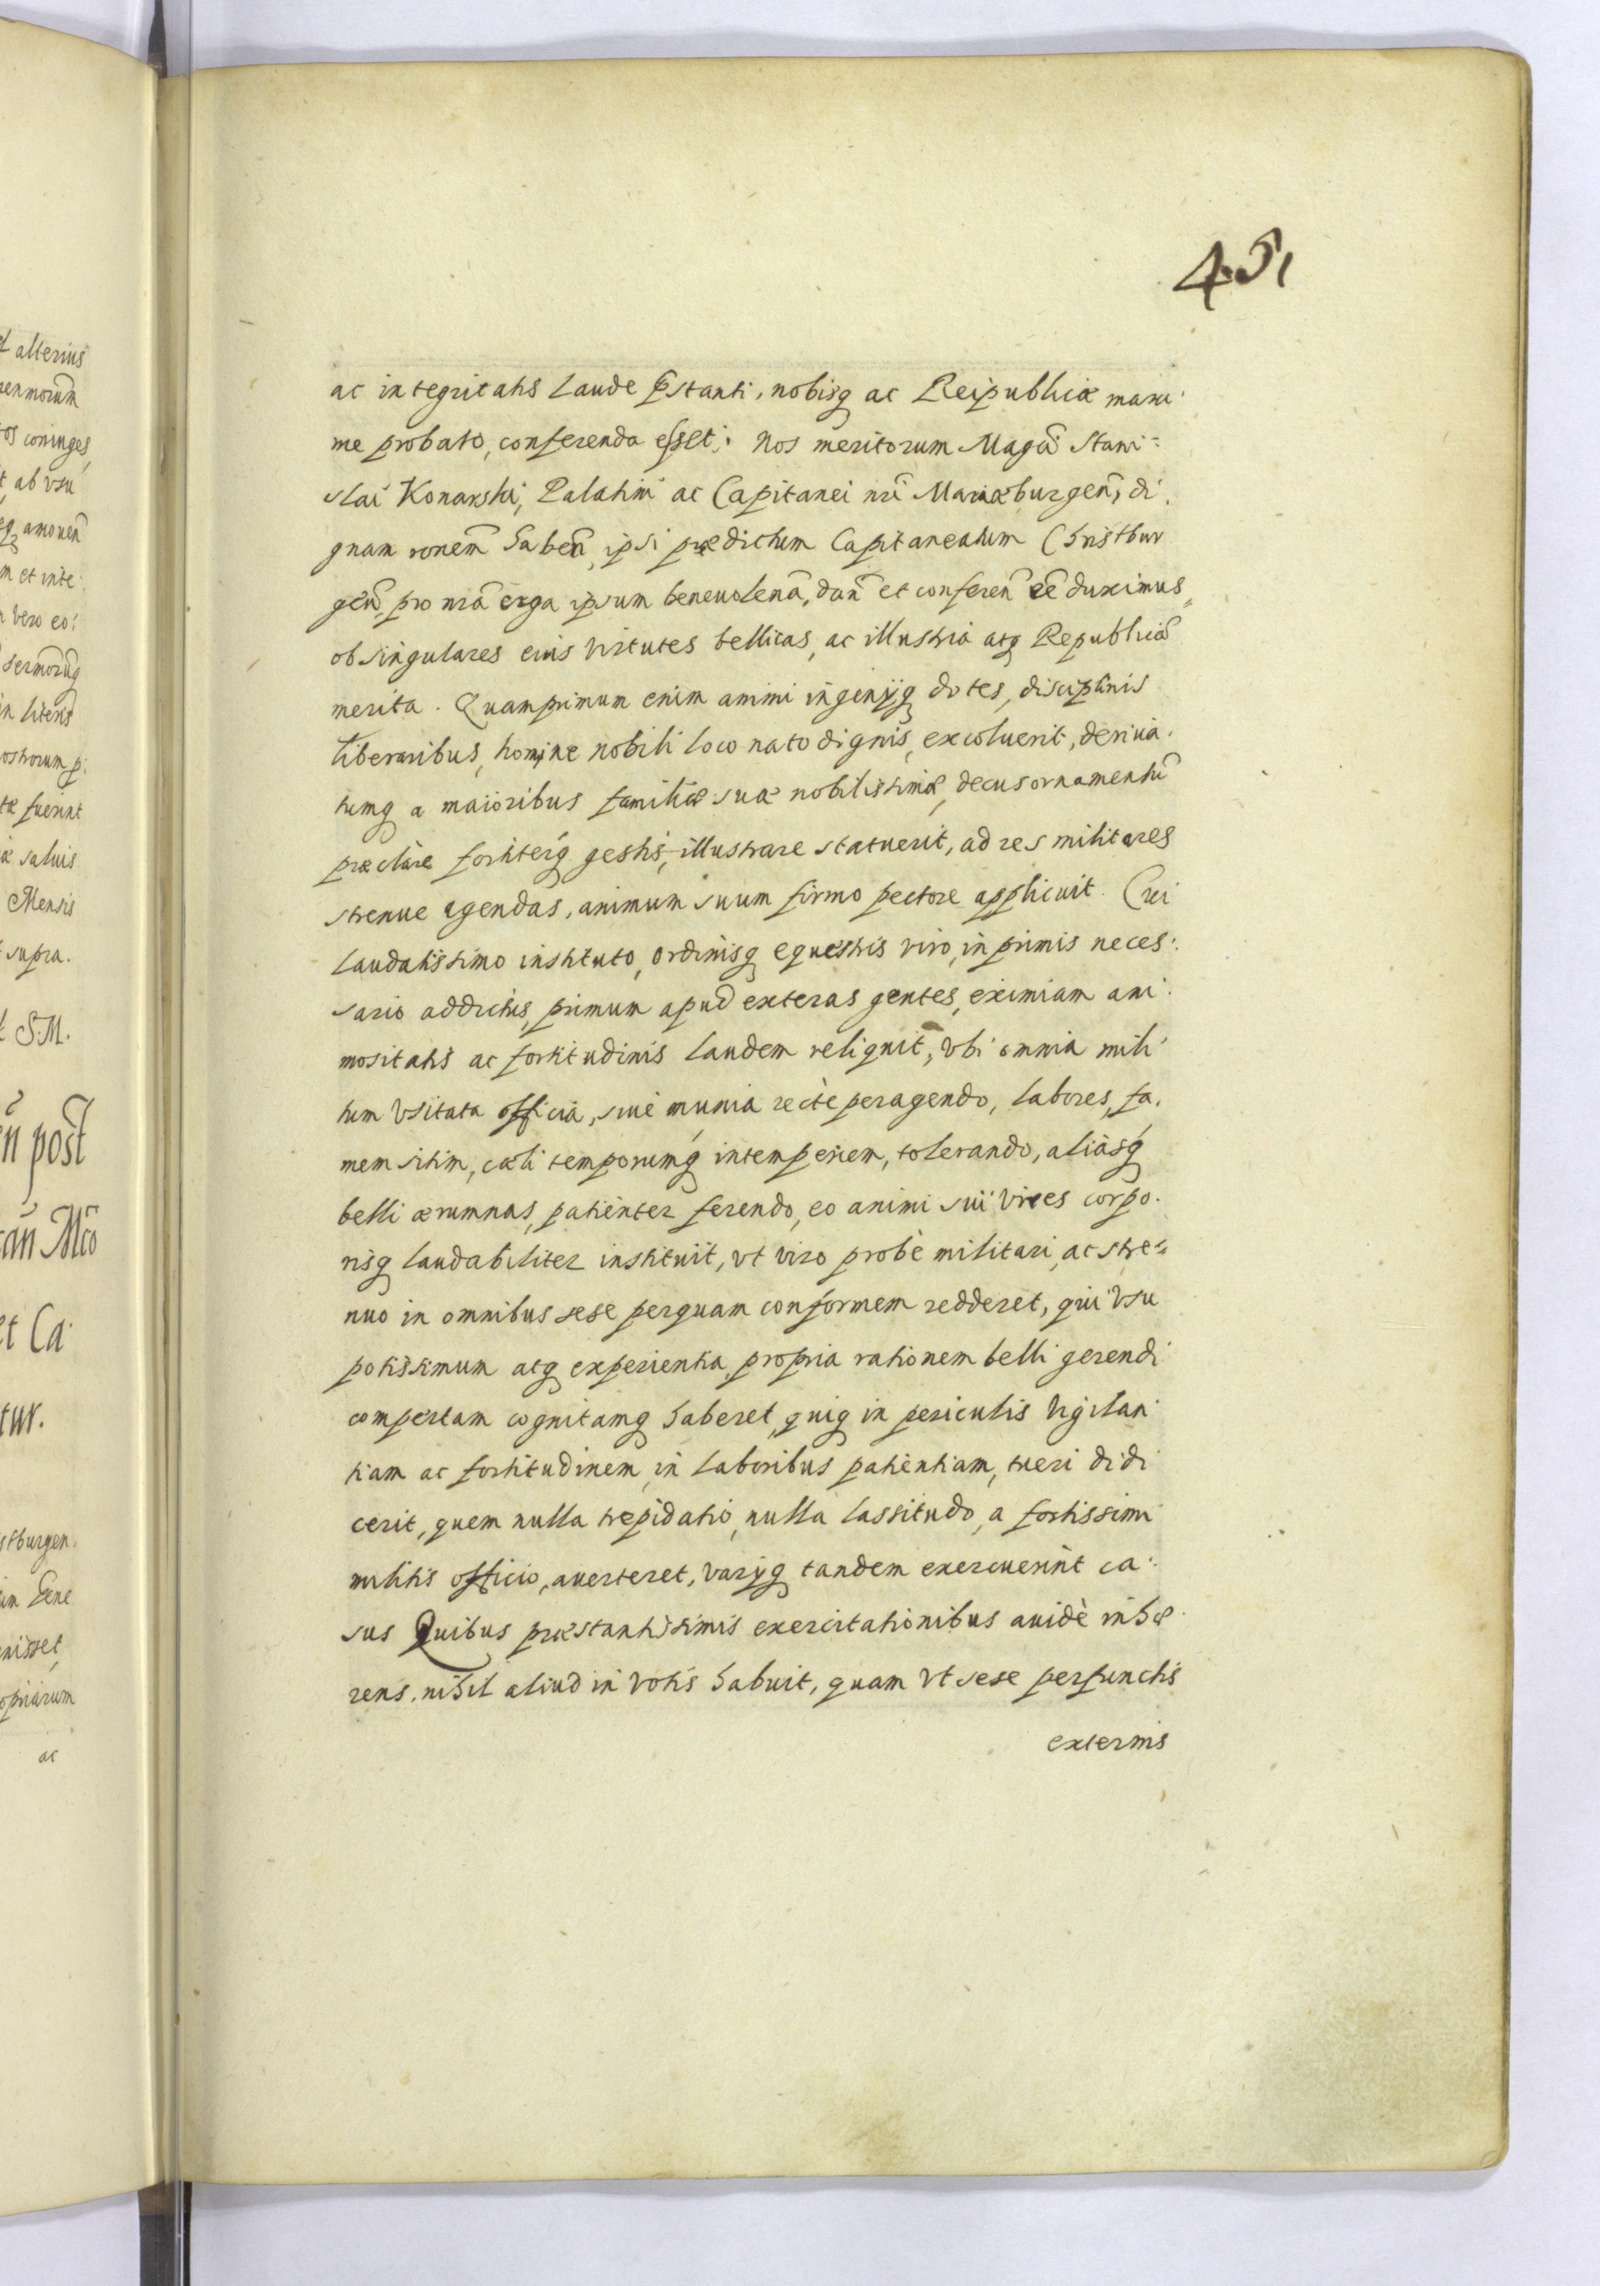 451
ac integritatis laude p̃stanti, nobisq ac Reipublicæ maxi:
me probato, conferenda esset; Nos meritorum Magcī Stani:
slai Konarski, Palatini ac Capitanei nrī Mariæburgeñ, di:
gnam ronem̃ habeñ, ipsi prædictum Capitaneatum Christbur
geñ, pro nrā erga ipsum beneuolenā, dañ et conferen̄ eē duximus,
ob singulares eius virtutes bellicas, ac illustria atq Republicā
merita. Quamprimum enim animi ingenijq dotes, disciplinis
liberaribus, homine nobili loco nato dignis, excoluerit, deriua:
tumq a maioribus familiæ suæ nobilissimæ, decus ornamentū
præclare fortiterq gestis, illustrare statuerit, ad res militares
strenue agendas, animum suum firmo pectore applicuit. Cui
laudatissimo instituto, ordinisq equestris viro, in primis neces:
sario addictus, primum apud exteras gentes, eximiam ani:
mositatis ac fortitudinis laudem reliquit, vbi omnia mili:
tum vsitata officia, siuè munia rectè peragendo, labores, fa:
mem sitim, cæli temporumq intemperiem, tolerando, aliasq
belli ærumnas, patienter ferendo, eo animi sui vires corpo:
risq laudabiliter instituit, vt viro probè militari, ac stre:
nuo in omnibus sese perquam conformem redderet, qui vsu
potissimum atq experientia propria rationem belli gerendi
compertam cognitamq haberet, quiq in periculis vigilan:
tiam ac fortitudinem, in laboribus patientiam, tueri didi
cerit, quem nulla trepidatio, nulla lassitudo, a fortissimi
militis officio, auerteret, varijq tandem exercuerint ca:
sus Quibus præstantissimis exercitationibus auidè inhæ:
rens, nihil aliud in votis habuit, quam vt sese perfunctis
externis